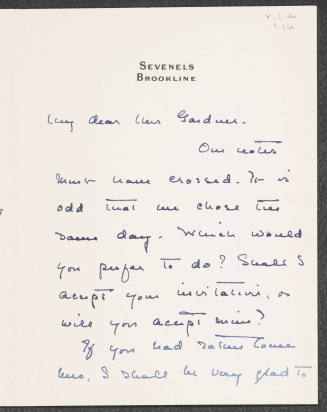 V.1.a
1.16
SEVENELS
BROOKLINE
My dear Mrs Gardner.
Our notes
must have crossed. It is
odd that we chose the
same day. Which would
you prefer to do? Shall I
accept your invitation, or
will you accept mine?
If you had rather come
here, I shall be very glad to